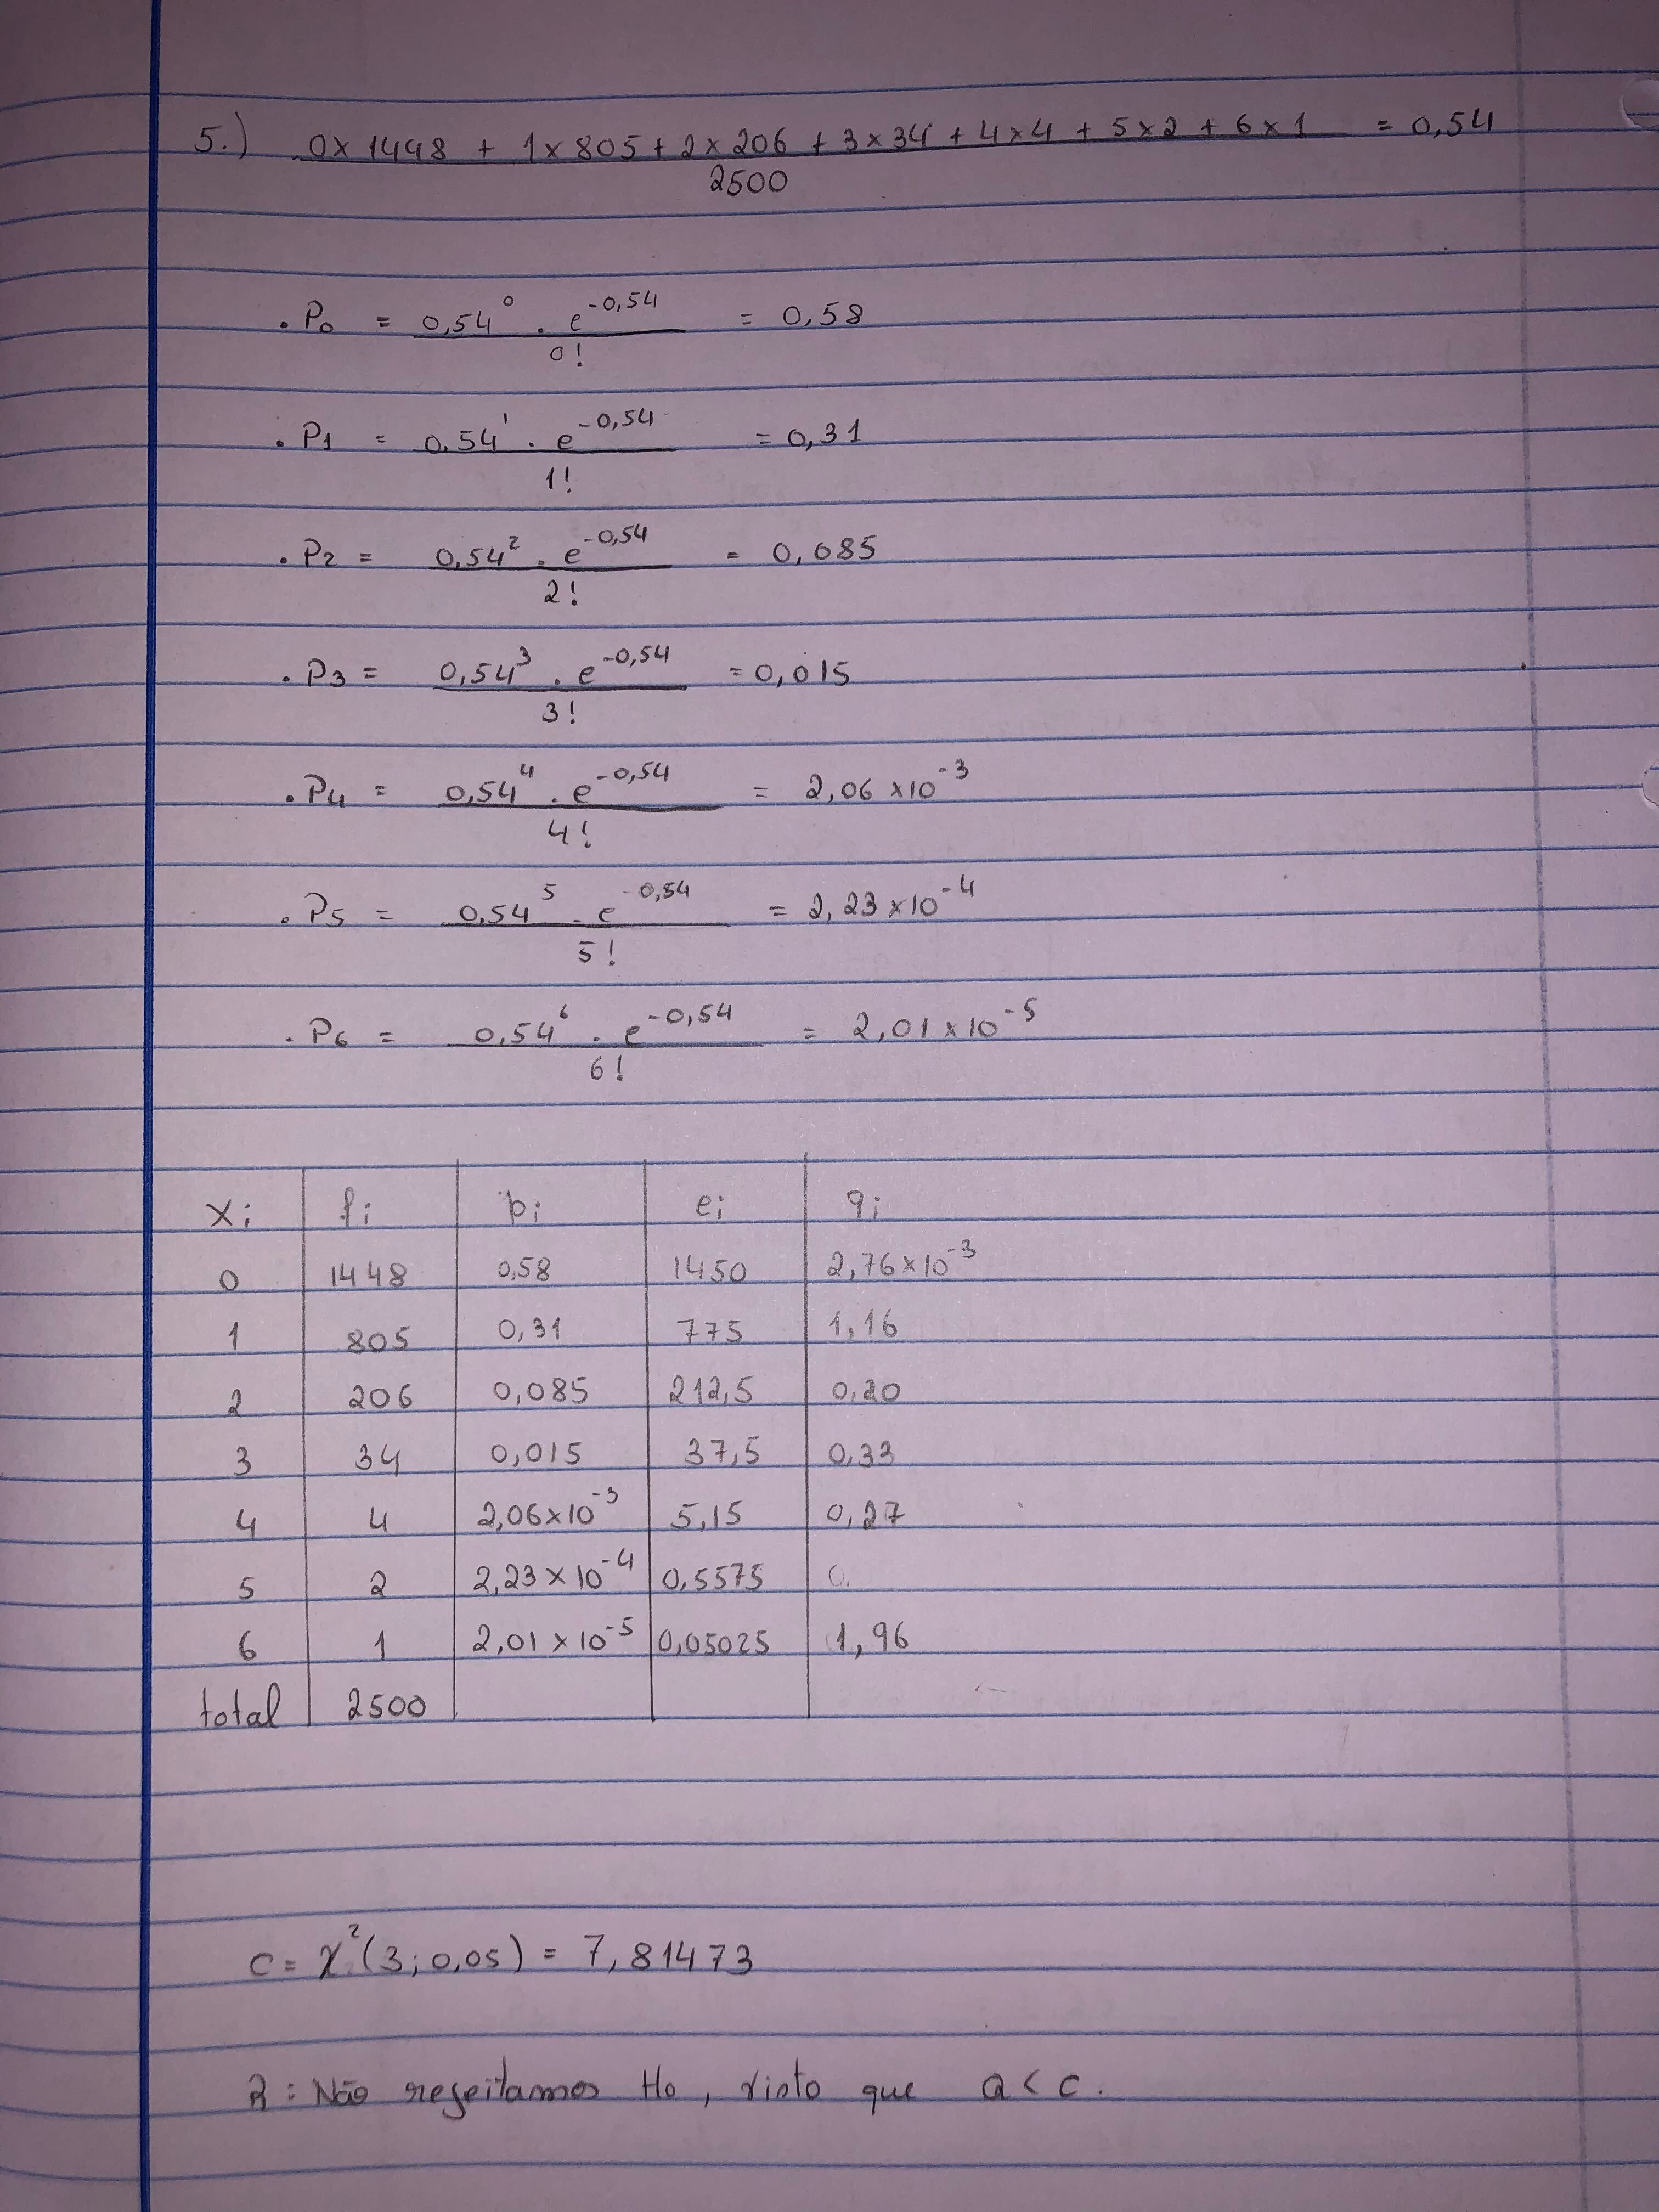 5.) 0x1448 + 1x805 + 2x206 + 3x34 + 4x4 + 5x2 + 6x1 = 0,54
2500
. P0 = 0,54^0 . e^-0,54 = 0,58
0!
. P1 = 0,54^1 . e^-0,54 = 0,31
1!
. P2 = 0,54^2 . e^-0,54 = 0,085
2!
. P3 = 0,54^3 . e^-0,54 = 0,015
3!
. P4 = 0,54^4 . e^-0,54 = 2,06 x10^-3
4!
. P5 = 0,54^5 . e^-0,54 = 2,23 x10^-4
5!
. P6 = 0,54^6 . e^-0,54 = 2,01 x10^-5
6!
xi fi pi ei qi
0 1448 0,58 1450 2,76x10^-3
1 805 0,31 775 1,16
2 206 0,085 212,5 0,20
3 34 0,015 37,5 0,33
4 4 2,06x10^-3 5,15 0,27
5 2 2,23x10^-4 0,5575
6 1 2,01x10^-5 0,05025 1,96
total 2500
c = χ²(3; 0,05) = 7,81473
R: Não rejeitamos H0, visto que Q < c.